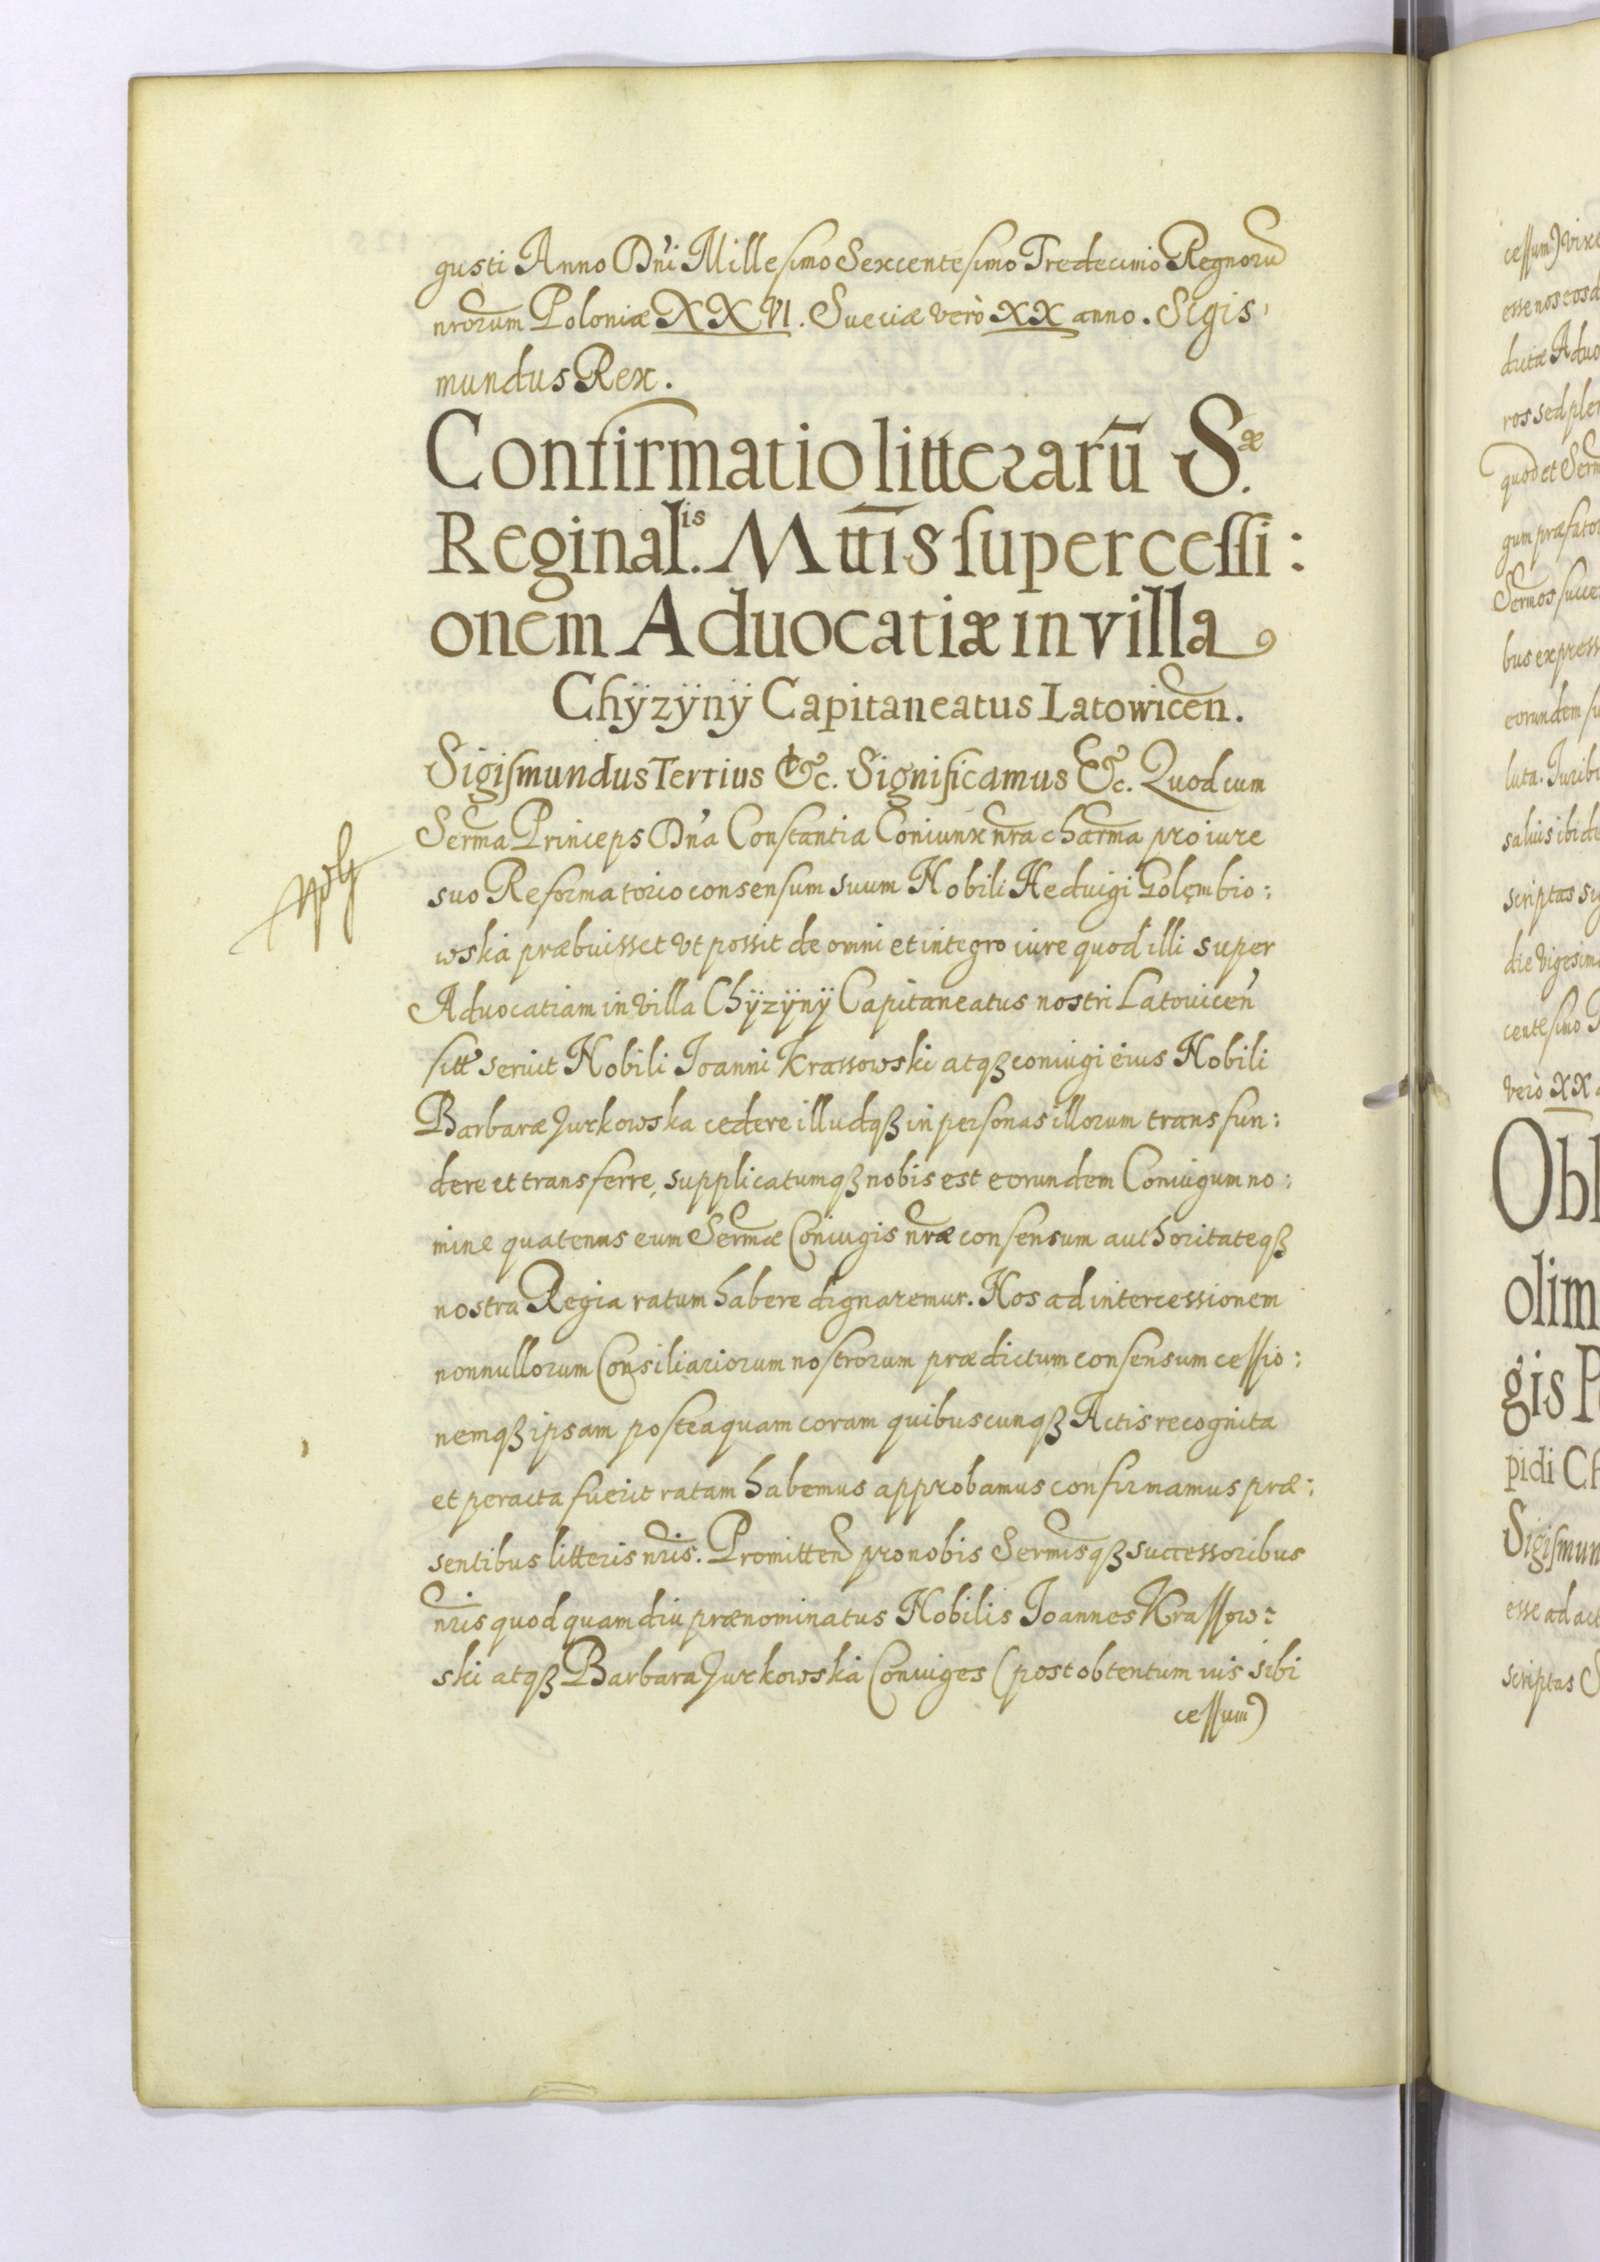 gusti Anno Dn̄i Millesimo Sexcentesimo Tredecimo Regnorū
nrorum Poloniæ XXVI. Sueciæ verò XX anno. Sigis,
mundus Rex.
Confirmatio litterarū Sæ.
Reginalis. Mttis super cessi:
onem Aduocatiæ in villa
Chÿzÿnÿ Capitaneatus Latowicen.
Sigismundus Tertius &c. Significamus &c. Quod cum
Serma Princeps Dn̄a Constantia Coniunx nra charma pro iure
suo Reformatorio consensum suum Nobili Heduigi Golęmbio:
wska præbuisset vt possit de omni et integro iure quod illi super
Aduocatiam in villa Chÿzÿnÿ Capitaneatus nostri Latouicen̄
sitt seruit Nobili Ioanni Krassowski atqꝫ coniugi eius Nobili
Barbaræ Jurkowska cedere illudqꝫ in personas illorum transfun:
dere et transferre, supplicatumqꝫ nobis est eorundem Coniugum no:
mine quatenus eum Sermæ Coniugis nræ consensum authoritateqꝫ
nostra Regia ratum habere dignaremur. Nos ad intercessionem
nonnullorum Consiliariorum nostrorum prædictum consensum cessio:
nemqꝫ ipsam posteaquam coram quibuscunqꝫ Actis recognita
et peracta fuerit ratam habemus approbamus confirmamus præ:
sentibus litteris nris. Promitten pro nobis Sermisqꝫ successoribus
nris quod quamdiu prænominatus Nobilis Ioannes Krassow:
ski atqꝫ Barbara Jurkowska Coniuges (post obtentum ius sibi
cessum)
cessum) vixe
esse nos eosd
dictæ Aduo
ros sed ple
quod et Serm
gum præfato
Sermos succe
bus express
eorundem su
luta. Iurib
saluis ibide
scriptas si
die vigesim
centesimo
verò XX a
Obl
olim
gis P
pidi Ch
Sigismun
esse ad act
scriptas S